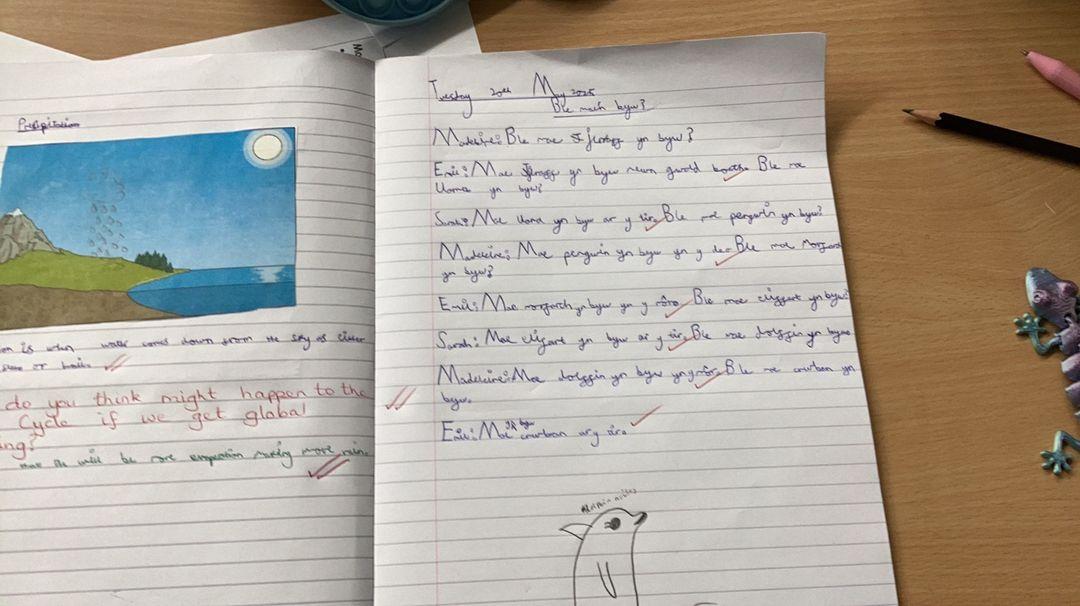 Mo
Precipitation
on is when water comes down from the sky as either
snow or hail.
do you think might happen to the
Cycle if we get global
ing?
the will be more evaporation making more rain.
Tuesday 20th May 2025
Ble mach byw?
Madeleine: Ble mae yn byw?
Emil: Mae yn byw mewn gwold Ble mae
llama yn byw?
Sarah: Mae llama yn byw ar y tir. Ble mae penguin yn byw?
Madeleine: Mae penguin yn byw yn y de. Ble mae
yn byw?
Emil: Mae morfarch yn byw yn y môr. Ble mae yn byw?
Sarah: Mae yn byw ar y tir. Ble mae dolffin yn byw
Madeleine: Mae dolffin yn byw yn y môr. Ble mae cwrban yn
byw.
Emil: Mae cwrban yn byw ar y tir.